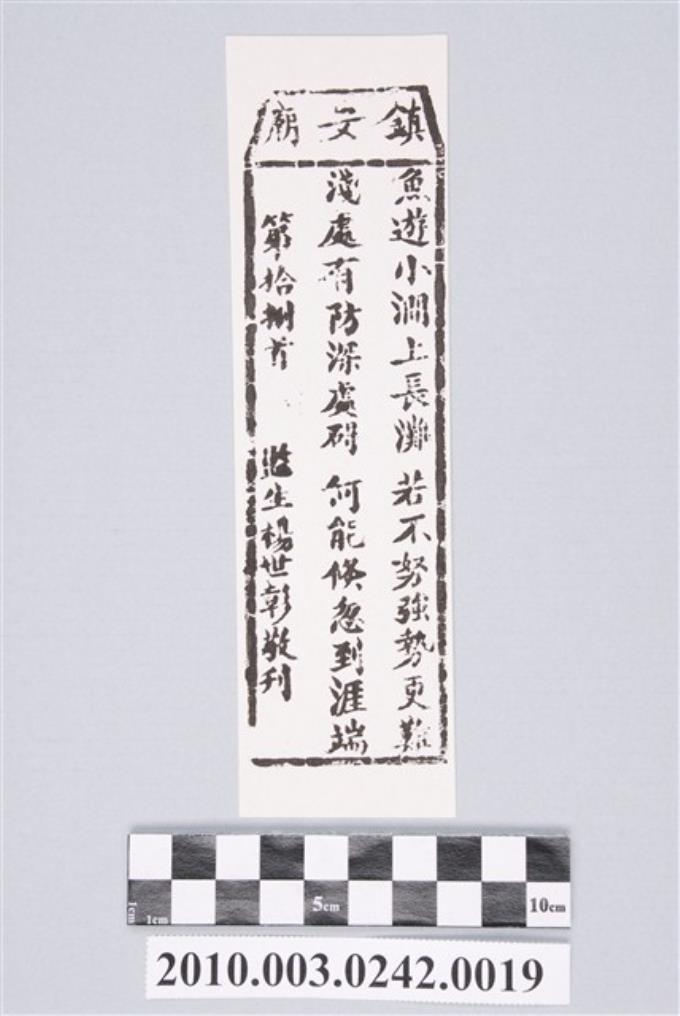 鎮安廟
魚遊小澗上長灘 若不努強勢更難
淺處有防深處碍 何能倏忽到涯端
第拾捌首 監生楊世彰敬刊
1cm 1cm 5cm 10cm
2010.003.0242.0019